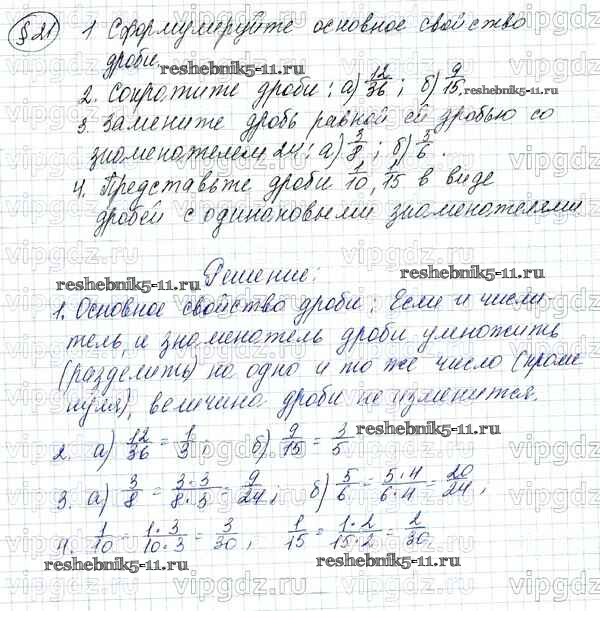 §21 1 Сформулируйте основное свойство
дроби.
reshebnik5-11.ru
2. Сократите дроби: а) 12/36; б) 9/15.
reshebnik5-11.ru
3. Замените дробь равной ей дробью со
знаменателем 24: а) 3/8; б) 5/6.
4. Представьте дроби 1/10, 1/15 в виде
дробей с одинаковыми знаменателями.
reshebnik5-11.ru
Решение:
reshebnik5-11.ru
1. Основное свойство дроби: Если и числи-
тель, и знаменатель дроби умножить
(разделить) на одно и то же число (кроме
нуля), величина дроби не изменится.
2. а) 12/36 = 1/3; б) 9/15 = 3/5
reshebnik5-11.ru
reshebnik5-11.ru
3. а) 3/8 = 3·3/8·3 = 9/24; б) 5/6 = 5·4/6·4 = 20/24,
4. 1/10 = 1·3/10·3 = 3/30, 1/15 = 1·2/15·2 = 2/30.
reshebnik5-11.ru
reshebnik5-11.ru
vipgdz.ru